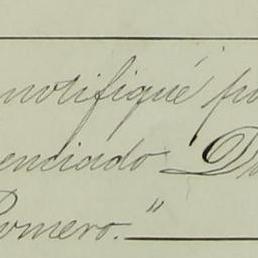 notifiqué
enciado
Romero."